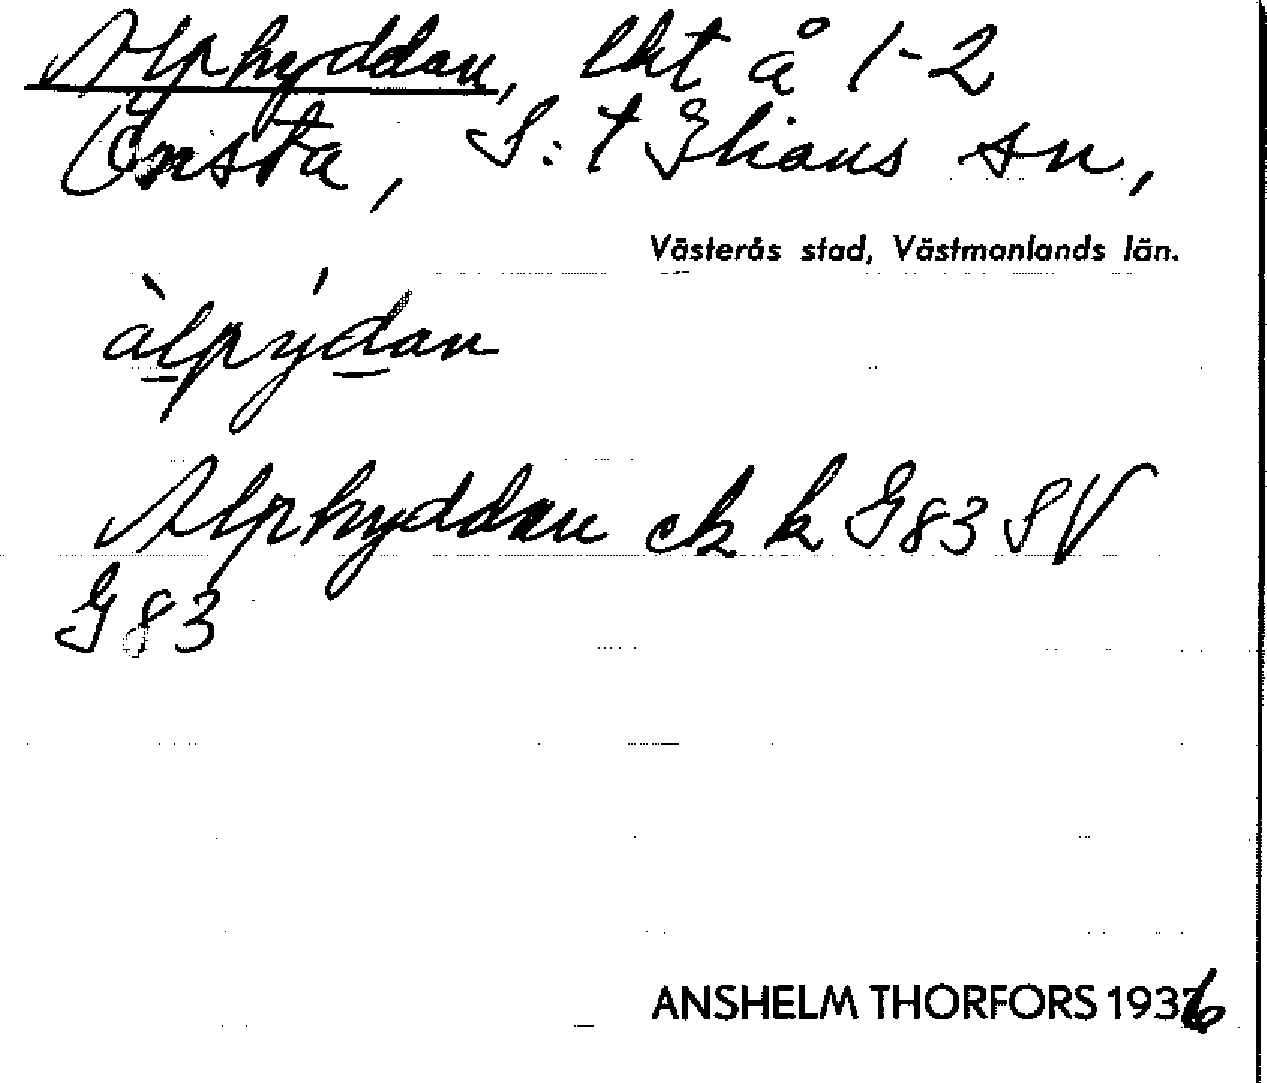 Alphyddan, lht å 1-2
Önsta, S:t Ilians sn,
Västerås stad, Västmanlands län.
àlpýdan
Alphyddan ek k G83 SV
G83
ANSHELM THORFORS 1936